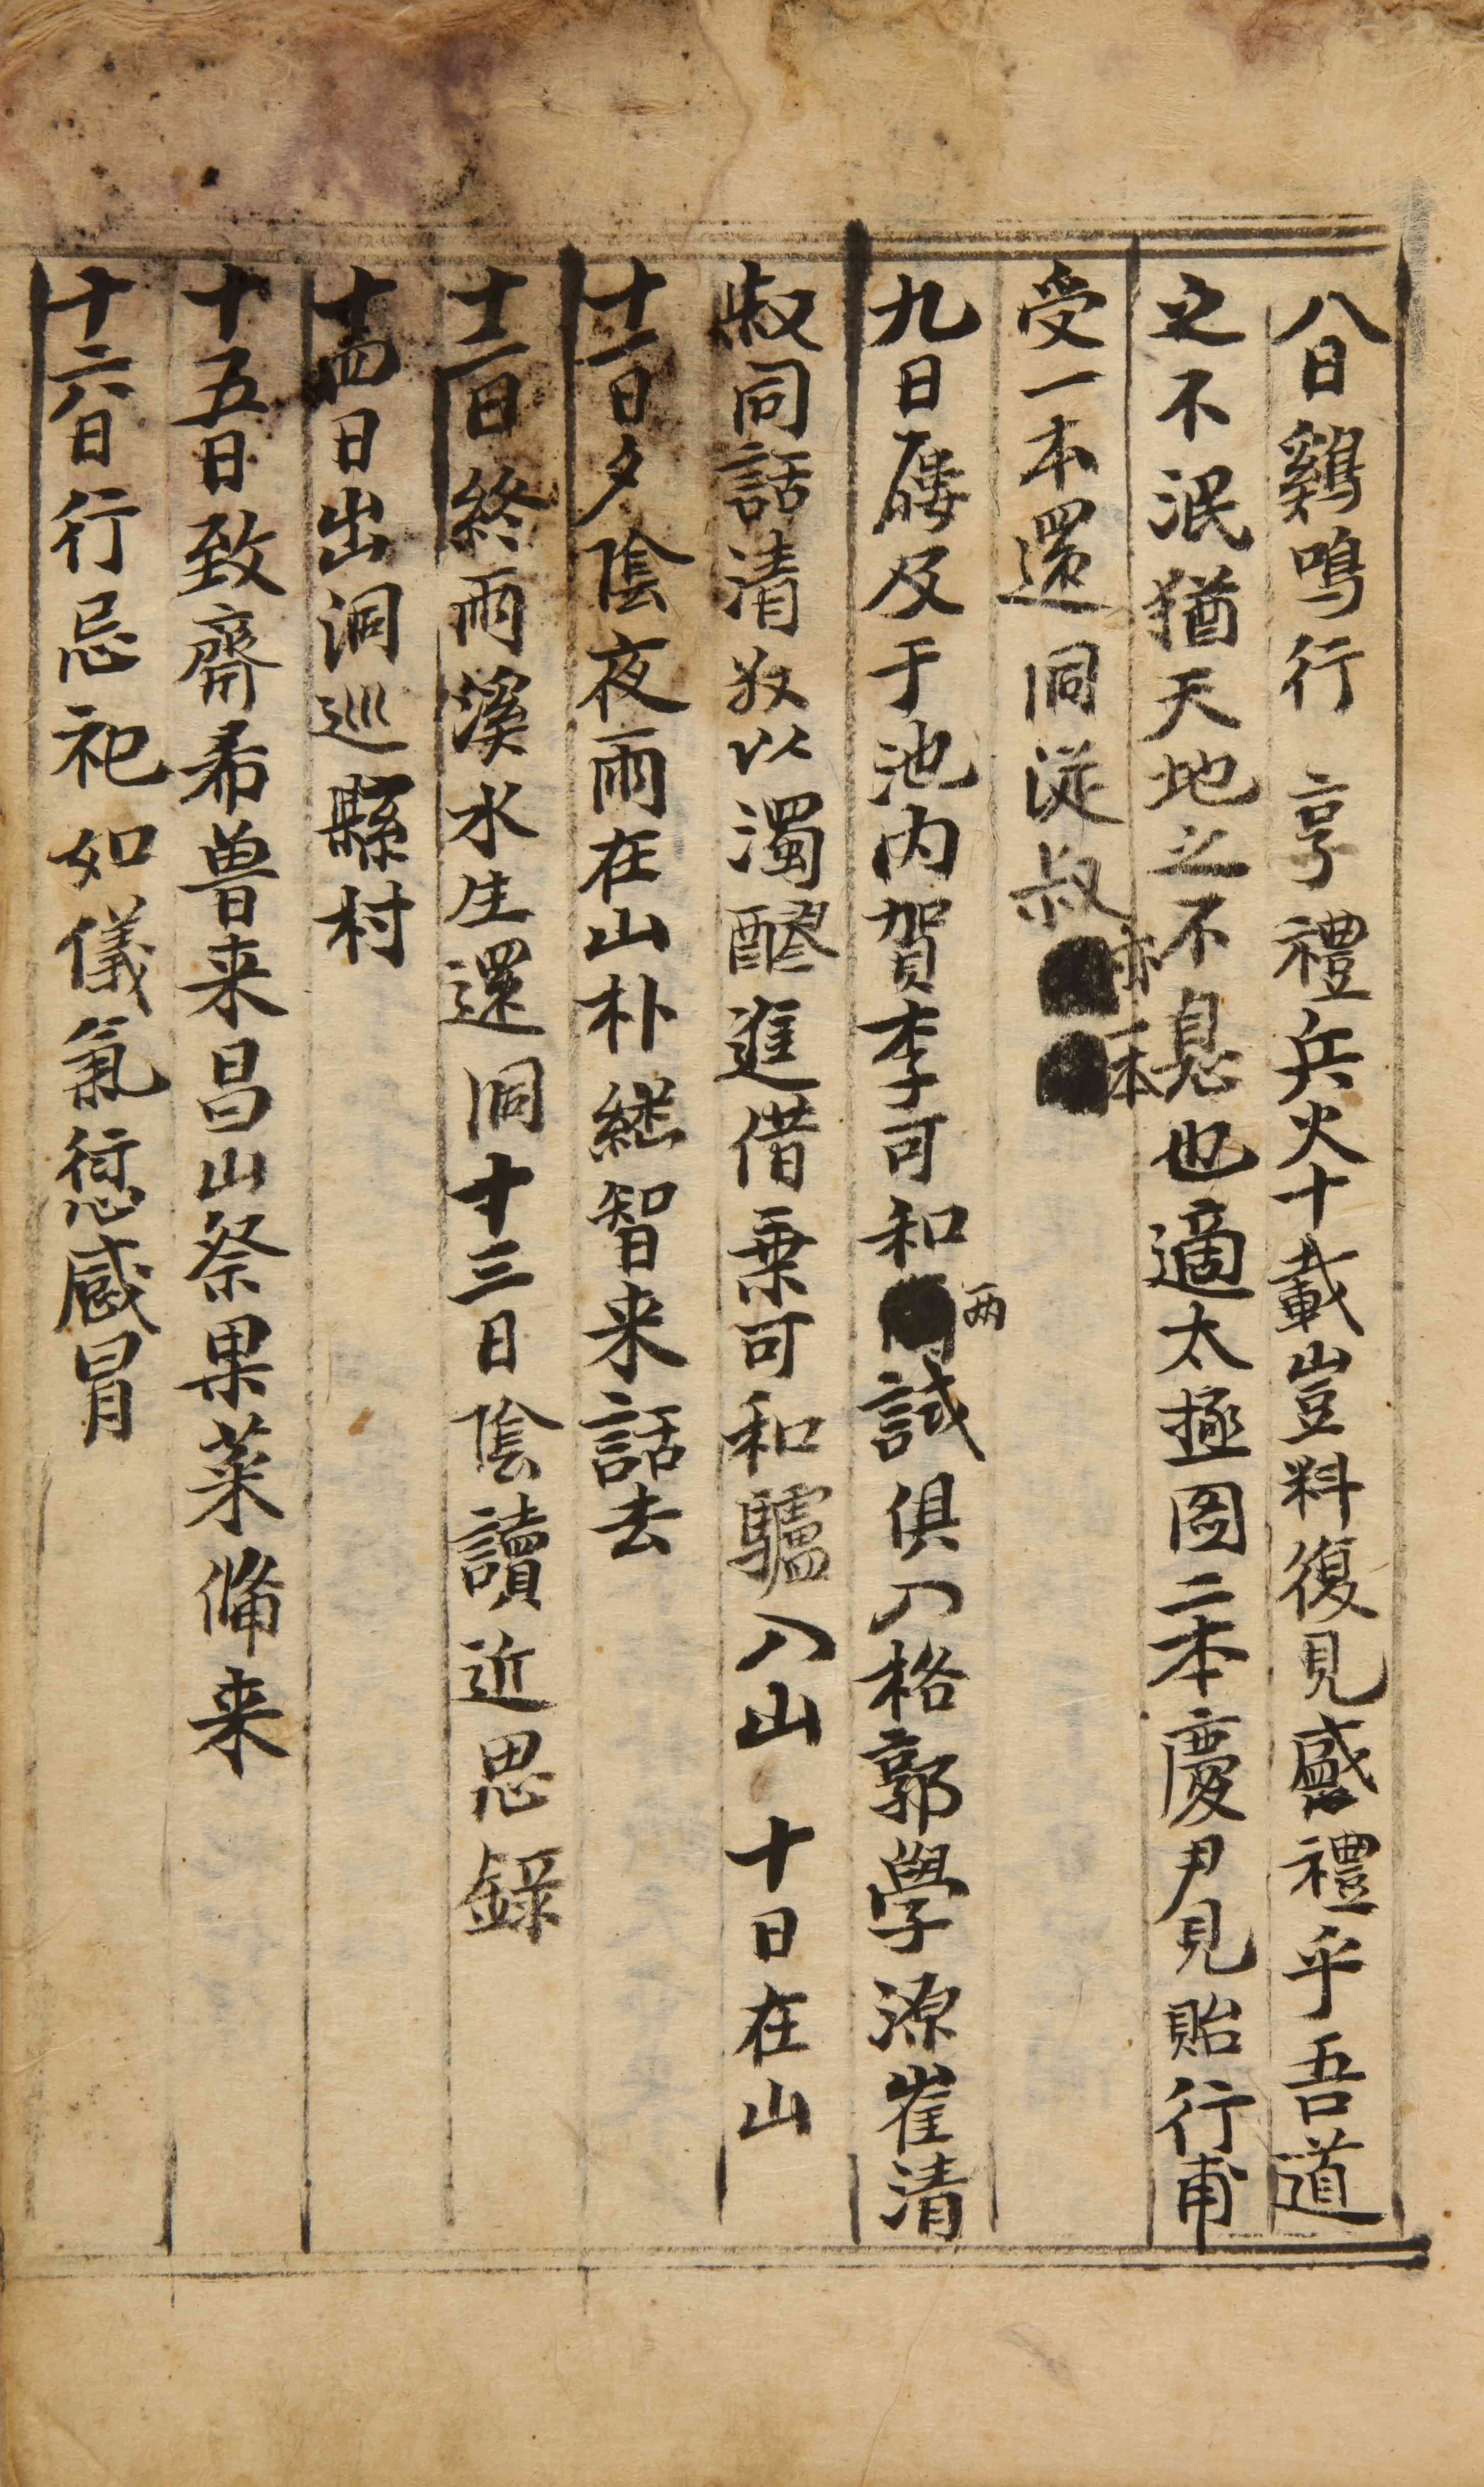 八日鷄鳴行 享禮兵火十載豈料復見盛禮乎吾道
之不泯猶天地之不息也適太極圖二本慶尹見貽行甫
受一本還洞從叔亦一本
九日歷及于池内賀李可和兩試俱入格郭學源崔清
叔同話清叔以濁醪進借乗可和驢入山 十日在山
十一日夕陰夜雨在山朴継智来話去
十二日終雨溪水生還洞十三日陰讀近思録
十四日出洞巡縣村
十五日致齋希曽来昌山祭果菜俻来
十六日行忌祀如儀氣愆感冒